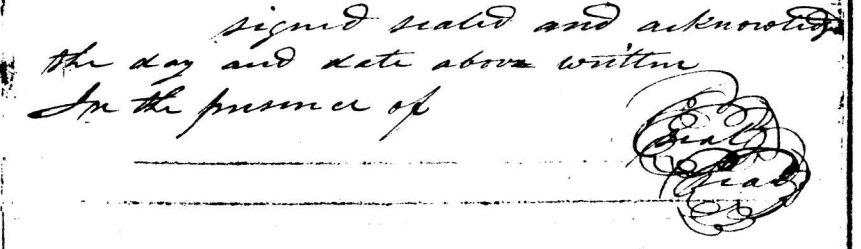 signed sealed and acknowledg
the day and date above written
In the presence of
Seal
Seal